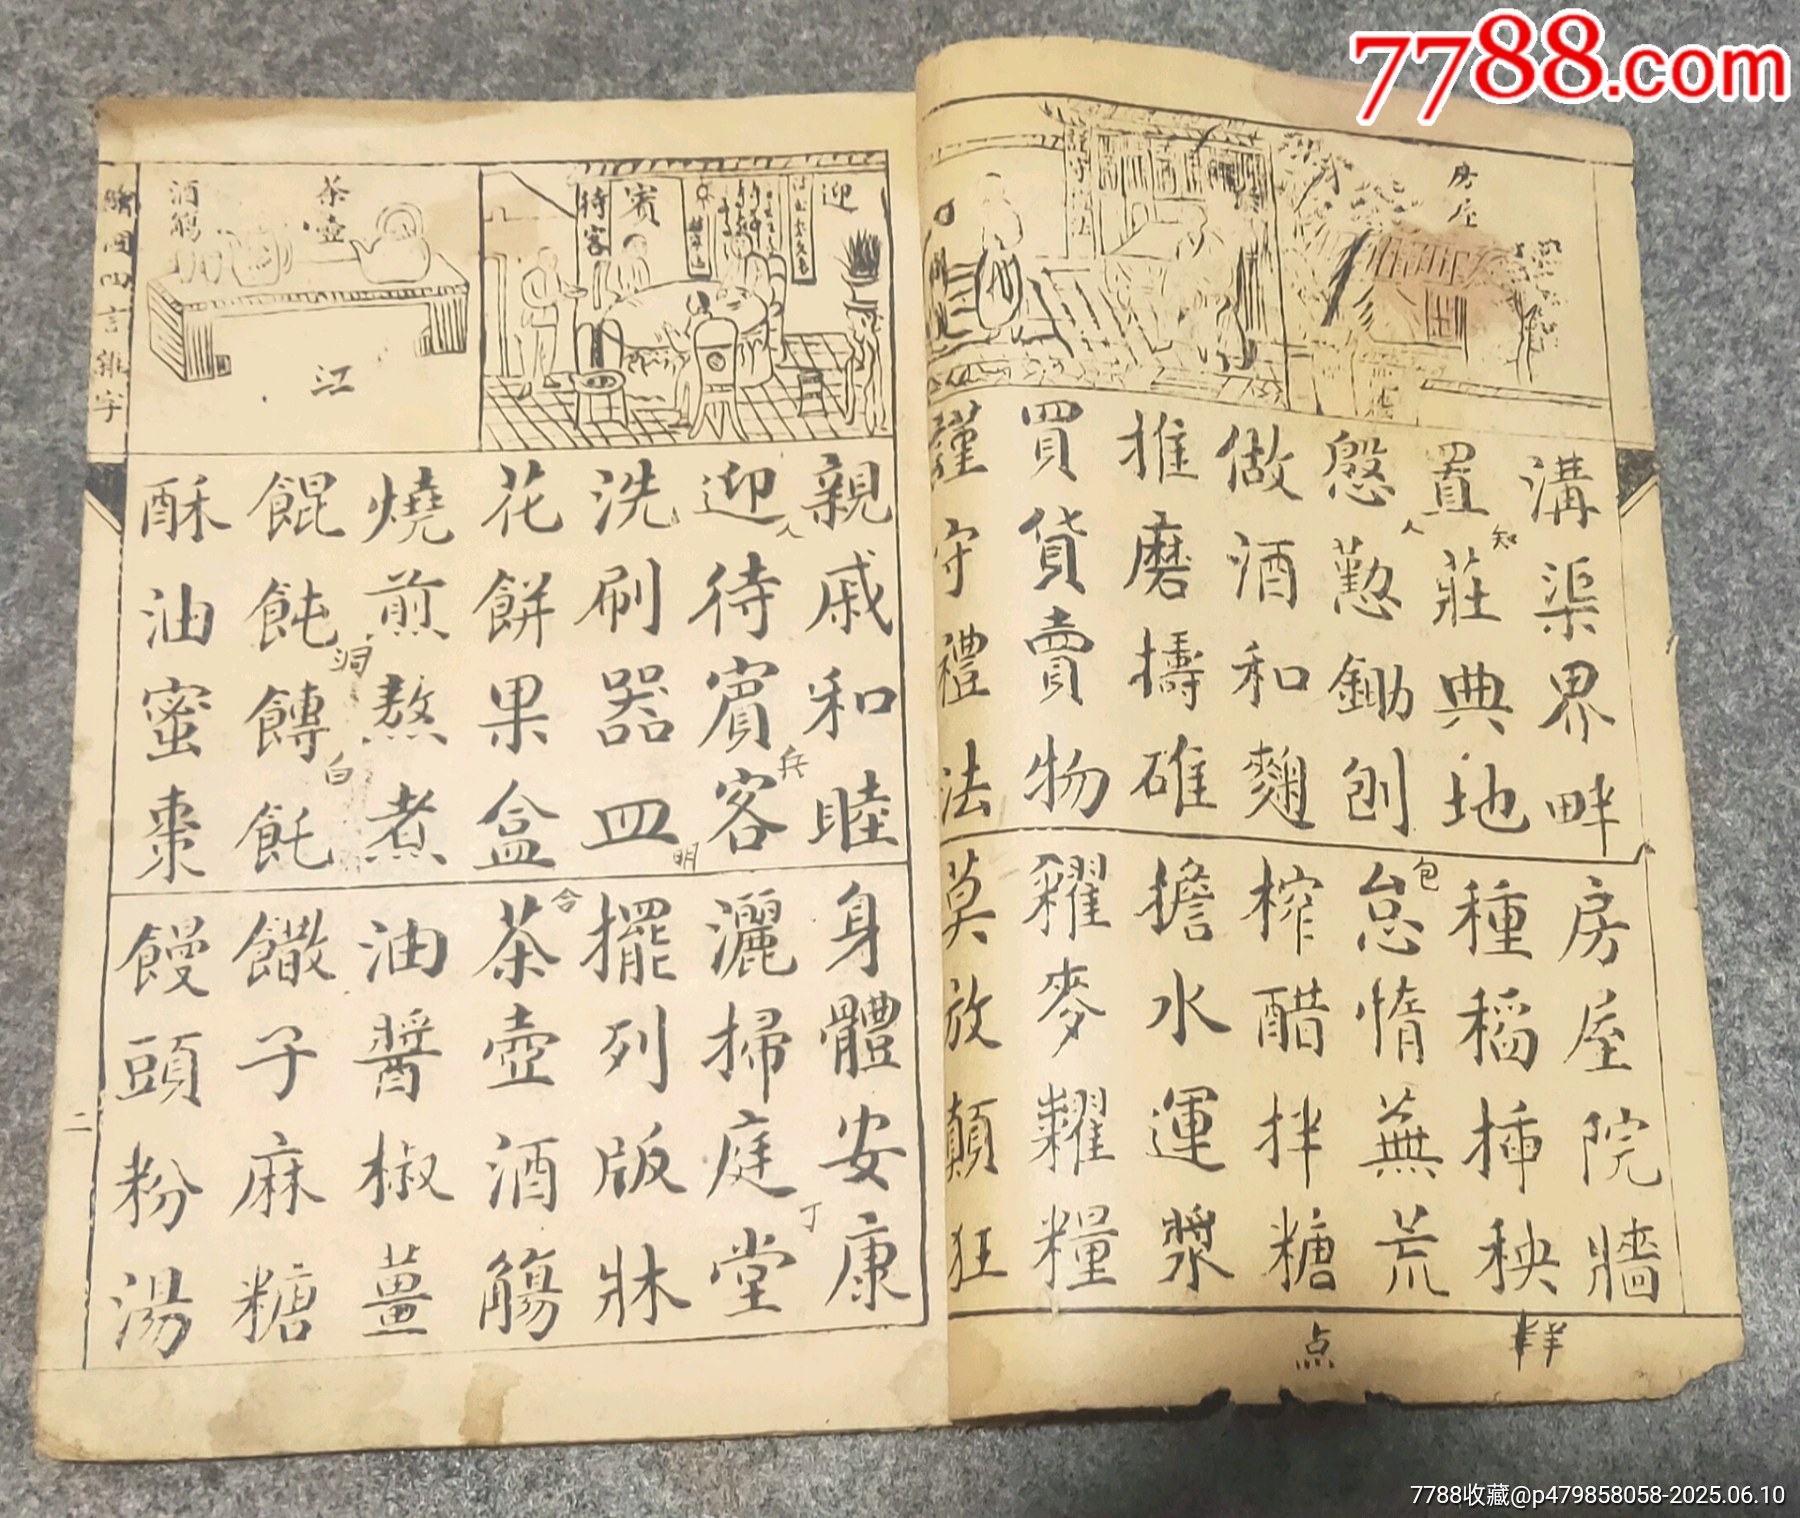 7788.com
房屋
溝渠界畔
置莊典地
慇懃鋤刨
做酒和麴
推磨擣碓
買貨賣物
謹守禮法
房屋院牆
種稻挿秧
怠惰蕪荒
榨醋拌糖
擔水運漿
糴麥糶糧
莫放顛狂
知
人
包
点
迎
賓
待客
茶壺
酒觴
江
親戚和睦
迎待賓客
洗刷器皿
花餅果盒
燒煎熬煮
餛飩餺飥
酥油蜜棗
身體安康
灑掃庭堂
擺列版牀
茶壺酒觴
油醬椒薑
饊子麻糖
饅頭粉湯
人
兵
丁
明
合
洞
白
繪圖四言雜字
二
7788收藏@p479858058-2025.06.10